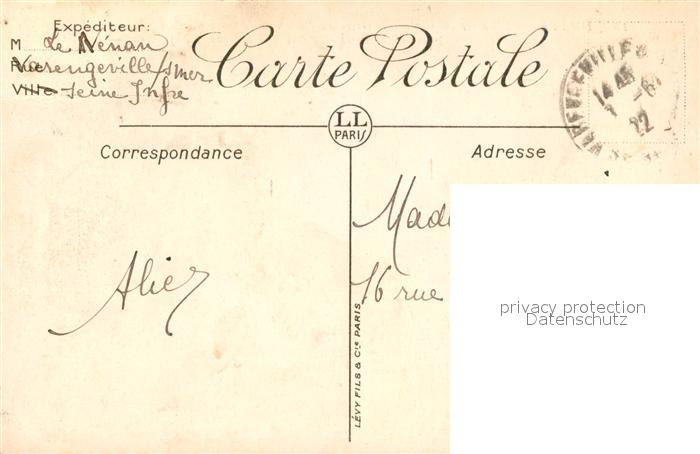 Expéditeur:
M Le Nénan
Rue Varengeville s/mer
Ville Seine Infre
Carte Postale
LL
PARIS
14
22
Correspondance
Adresse
Mad
16 rue
LÉVY FILS & Cie PARIS
privacy protection
Datenschutz